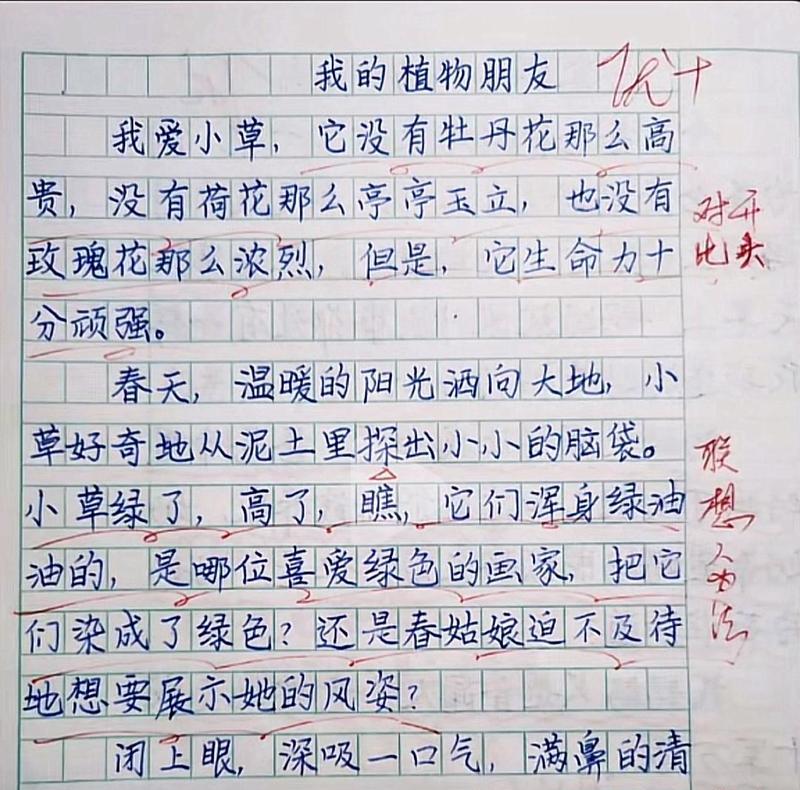 我的植物朋友 优+
我爱小草，它没有牡丹花那么高
贵，没有荷花那么亭亭玉立，也没有
玫瑰花那么浓烈，但是，它生命力十
分顽强。
春天，温暖的阳光洒向大地，小
草好奇地从泥土里探出小小的脑袋。
小草绿了，高了，瞧，它们浑身绿油
油的，是哪位喜爱绿色的画家，把它
们染成了绿色？还是春姑娘迫不及待
地想要展示她的风姿？
闭上眼，深吸一口气，满鼻的清
对比
开头
联想